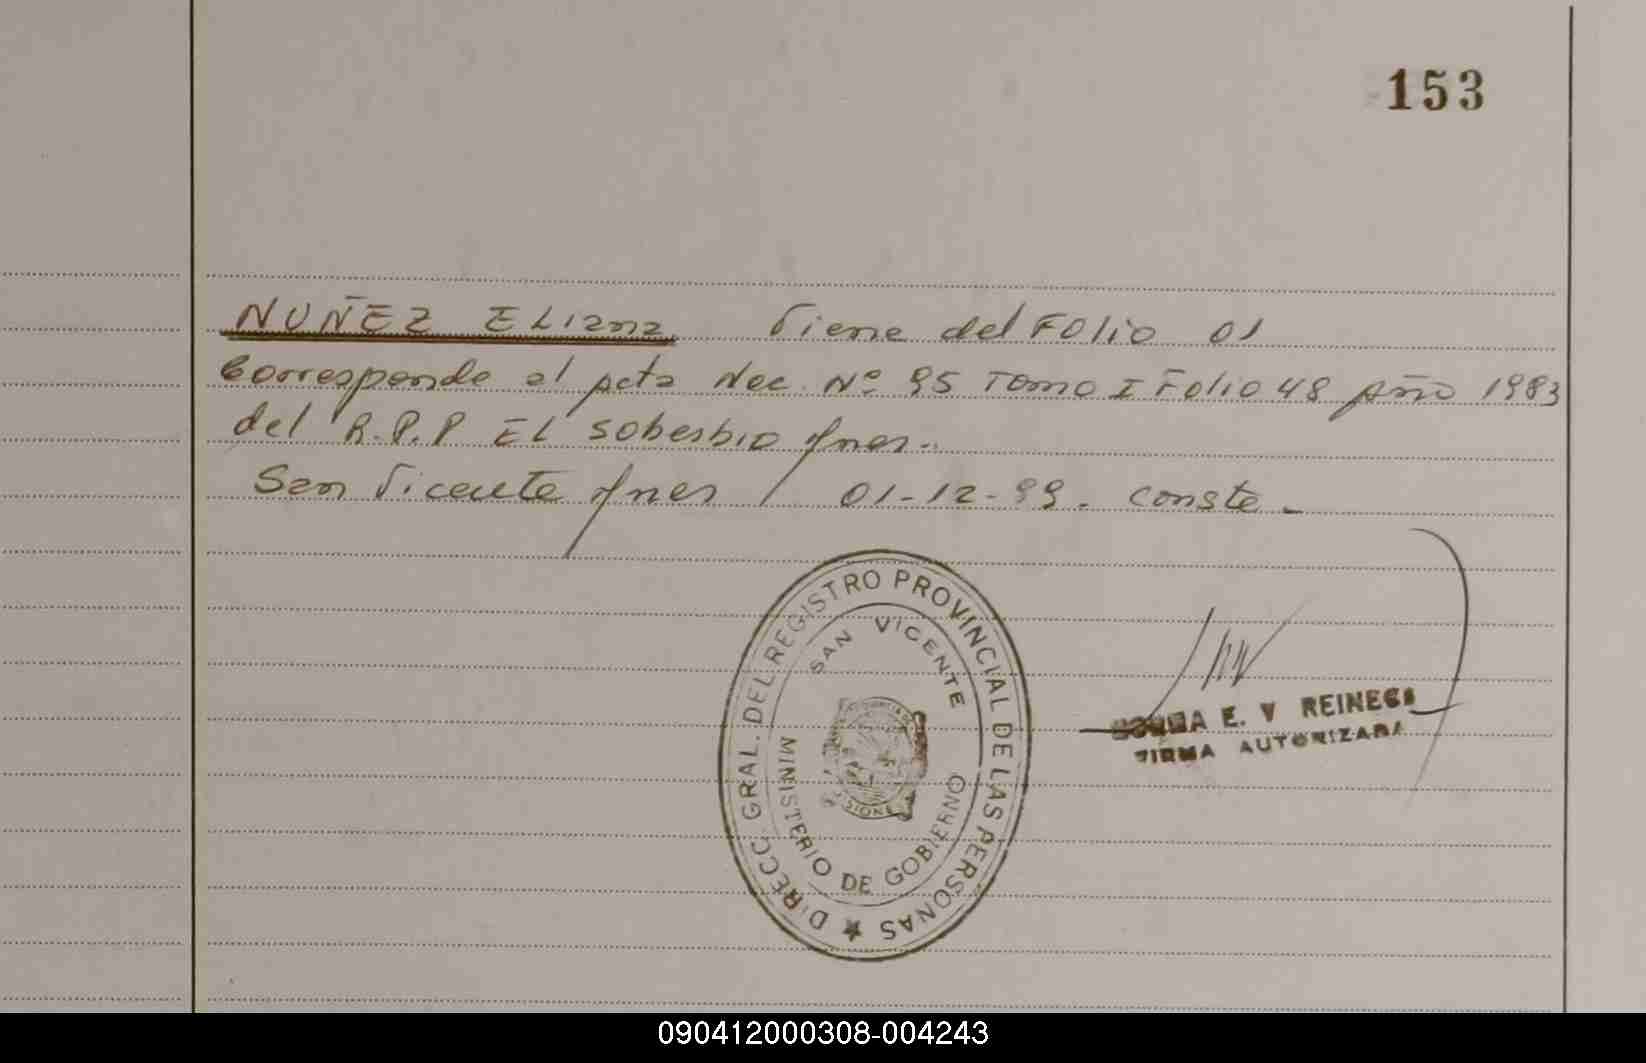 153
NUÑEZ ELIana Viene del Folio 01
Corresponde al Acta Nac. Nº 95 Tomo I Folio 48 Año 1983
del R.P.P EL Soberbio Mnes.-
San Vicente Mnes 01-12-99. Conste.-
DIRECC. GRAL. DEL REGISTRO PROVINCIAL DE LAS PERSONAS
SAN VICENTE
MINISTERIO DE GOBIERNO
E. V REINECK
FIRMA AUTORIZADA
090412000308-004243